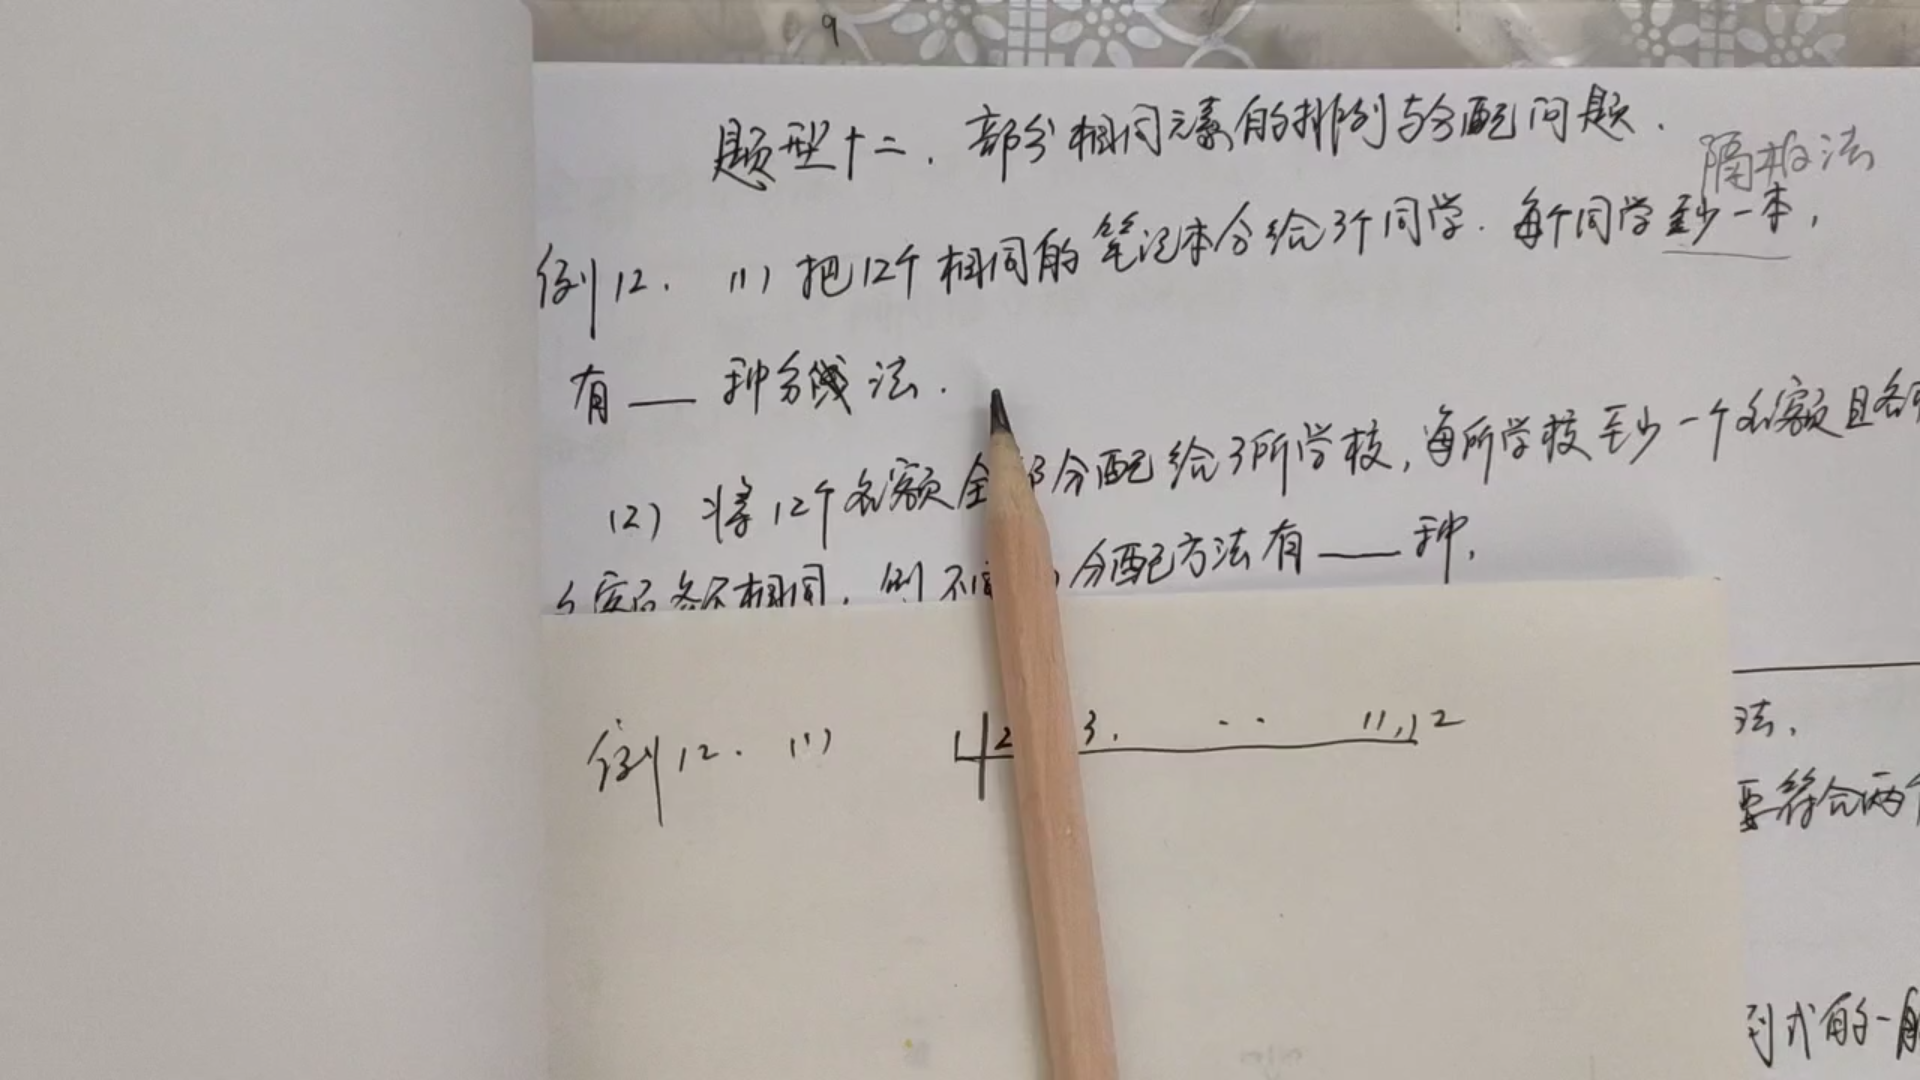 9
题型十二．部分相同元素的排列与分配问题．
隔板法
例12．(1) 把12个相同的笔记本分给3个同学．每个同学至少一本，
有 —— 种分 法．
(2) 将12个名额全部分配给3所学校，每所学校至少一个名额且各
名额各不相同，则不 分配方法有 —— 种，
例12．(1) 1 2 3． ‥ 11,12
法．
要符合两个
列式的一般